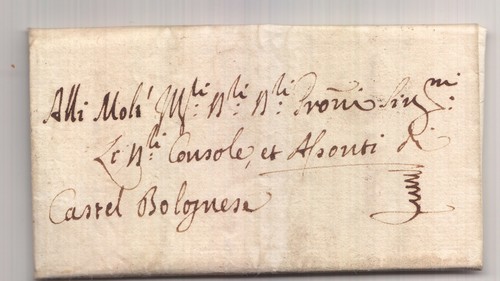 Alli Molt' Ill:ri N:li N:li Pro̅ni Sig:mi
Li N:li Console, et Assonti di
Castel Bolognese